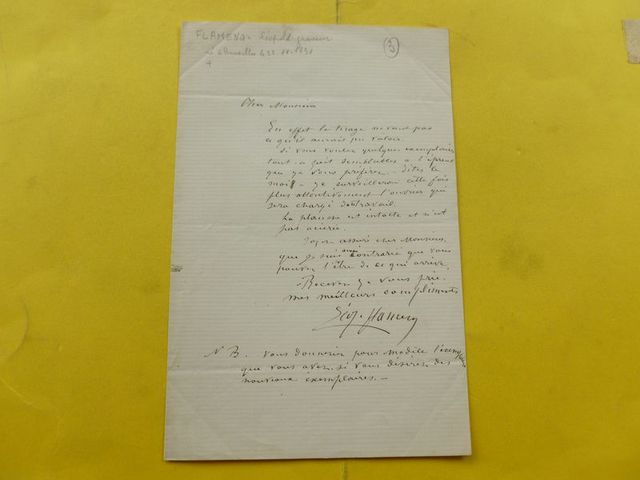 FLAMENG Léopold graveur
né à Bruxelles le 22. 11. 1831
+
3
Cher Monsieur
En effet le tirage ne vaut pas
ce qu'il aurait pu valoir.
Si vous voulez quelques exemplaires
tout à fait semblables à l'épreuve
que je vous préfère. dites le
moi - je surveillerai cette fois
plus attentivement l'ouvrier qui
sera chargé du travail.
La planche est intacte et n'est
pas aciérée.
Soyez assuré cher Monsieur,
que je suis aussi contrarié que vous
pouvez l'être de ce qui arrive.
Recevez je vous prie
mes meilleurs compliments
Léop. Flameng
N B. Vous donnerez pour modèle l'exempl
que vous avez, si vous désirez des
nouveaux exemplaires. -